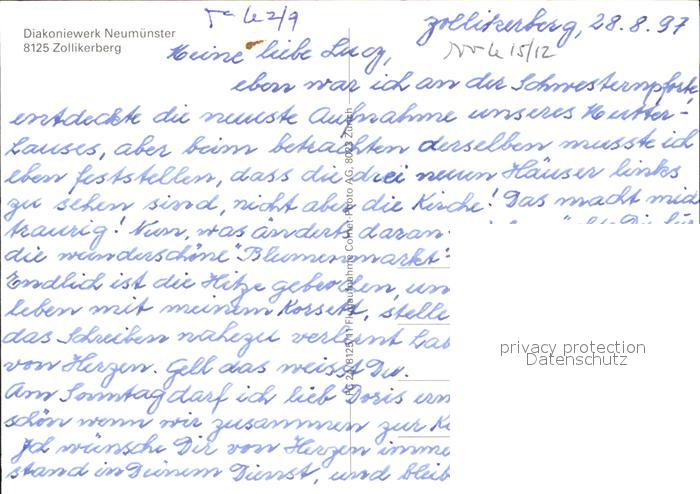 Diakoniewerk Neumünster
8125 Zollikerberg
le 2/9
Zollikerberg, 28.8.97
le 15/12
Meine liebe Lucy,
eben war ich an der Schwesternpforte
entdeckte die neueste Aufnahme unseres Mutter-
hauses, aber beim betrachten derselben musste ich
eben feststellen, dass die drei neuen Häuser links
zu sehen sind, nicht aber die Kirche! Das macht mich
traurig! Nun, was änderts daran
die wunderschöne "Blumenmarkt"
Endlich ist die Hitze gebrochen, un
leben mit meinem Korsett, stelle
das Schreiben nahezu verlernt hab
von Herzen. Gell das weisst Du.
Am Sonntag darf ich lieb Doris ern
schön wenn wir zusammen zur Ki
Ich wünsche Dir von Herzen imme
stand in Deinem Dienst, und bleib
Flugaufnahme Comet-Photo AG, 8023 Zürich
privacy protection
Datenschutz